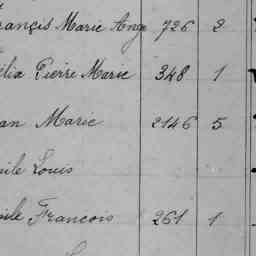 rançis Marie Ange 726 2
élix Pierre Marie 348 1
an Marie 2146 5
ile Louis
ile François 261 1